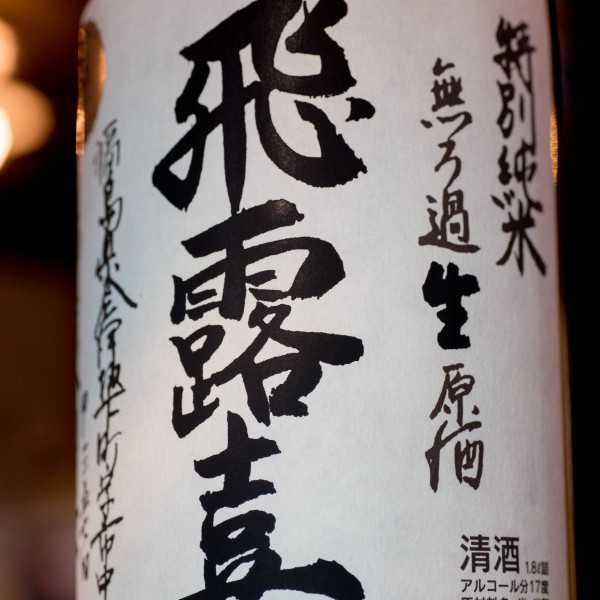 特別純米
無ろ過生原酒
飛露喜
福島県会津坂下町字市中
清酒 1.8ℓ詰
アルコール分17度